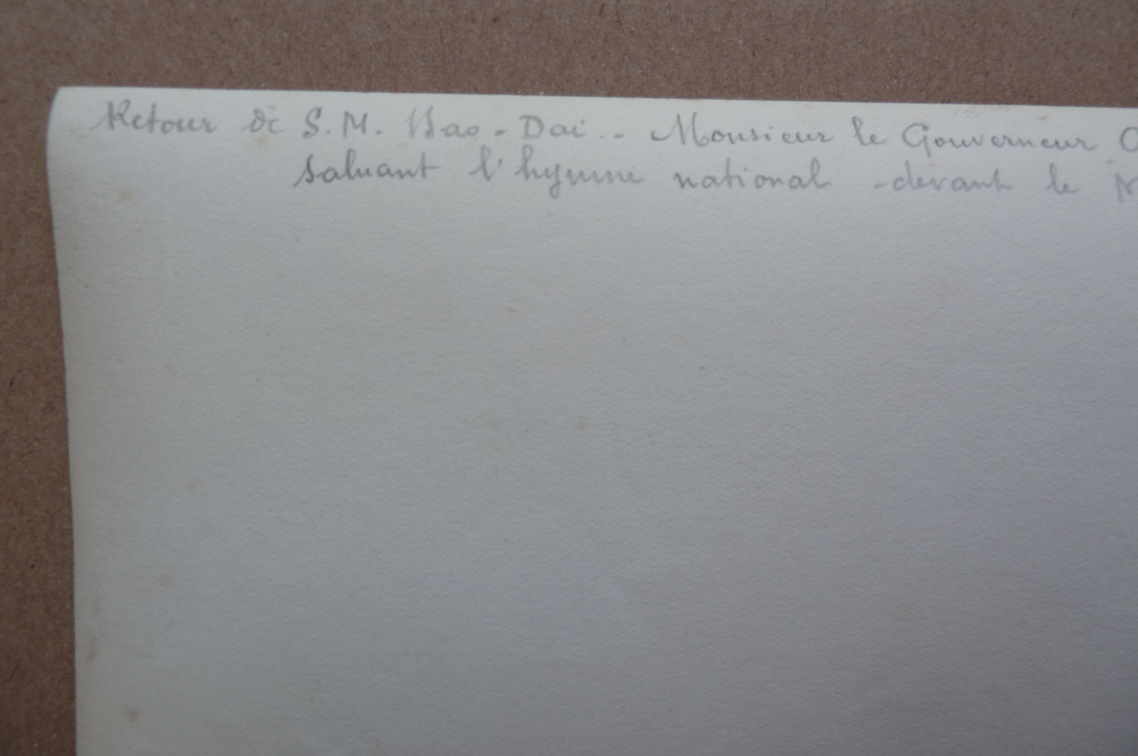 Retour de S.M. Bao-Dai.. Monsieur le Gouverneur
saluant l'hymne national - devant le